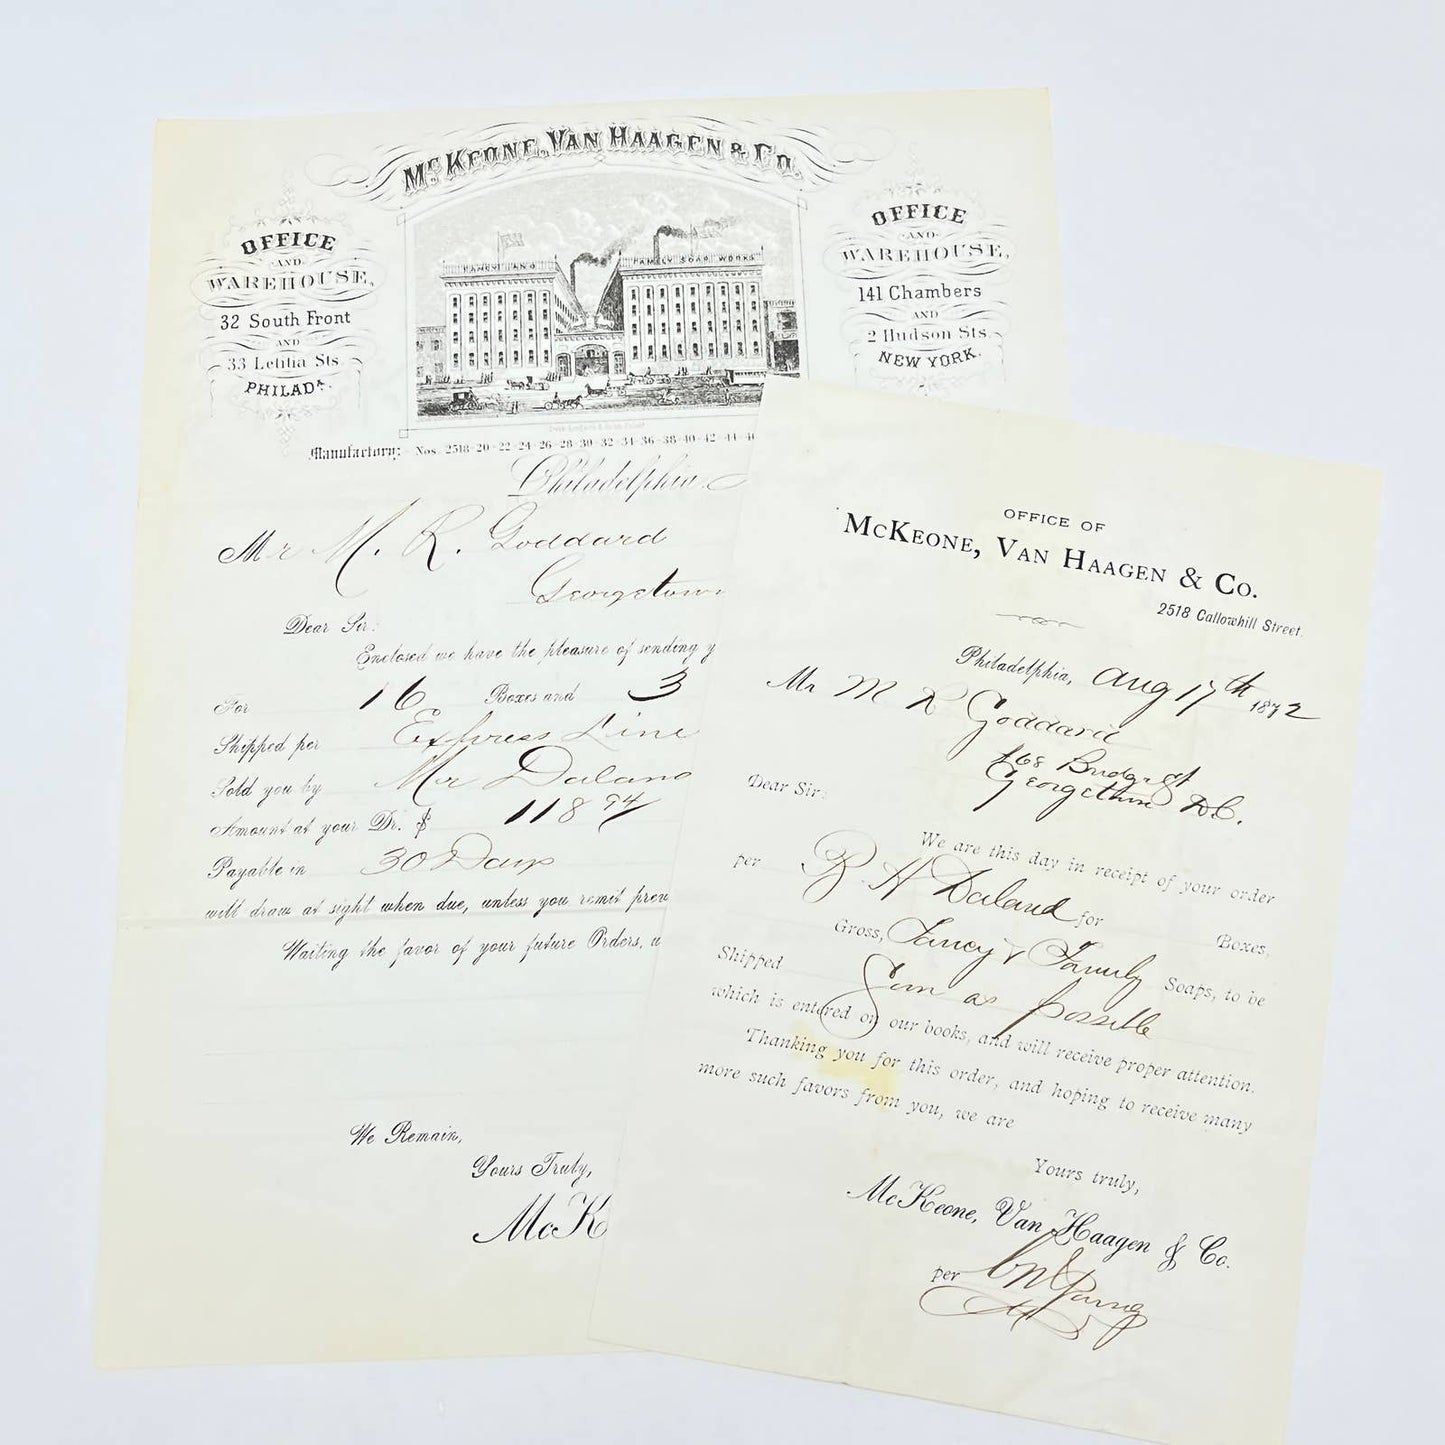 McKeone, Van Haagen & Co.
Office
and
Warehouse,
32 South Front
and
33 Letitia Sts
Philada.
Fancy and
Family Soap Works
Office
and
Warehouse,
141 Chambers
and
2 Hudson Sts
New York.
Manufactory: Nos. 2518-20-22-24-26-28-30-32-34-36-38-40-42-44-46
Philadelphia,
Mr M. R. Goddard
Georgetown
Dear Sir:
Enclosed we have the pleasure of sending y
For 16 Boxes and 3
Shipped per Express Line
Sold you by Mr Daland
Amount at your Dr. $ 118 94/
Payable in 30 Days
will draw at sight when due, unless you remit prev
Waiting the favor of your future Orders, w
We Remain,
Yours Truly,
McK
OFFICE OF
McKeone, Van Haagen & Co.
2518 Callowhill Street.
Philadelphia, Aug 17th 1872
Mr M R Goddard
168 Bridge St
Georgetown DC.
Dear Sir:
We are this day in receipt of your order
per B H Daland for Boxes,
Gross, Fancy & Family Soaps, to be
Shipped Soon as possible
which is entered on our books, and will receive proper attention.
Thanking you for this order, and hoping to receive many
more such favors from you, we are
Yours truly,
McKeone, Van Haagen & Co.
per